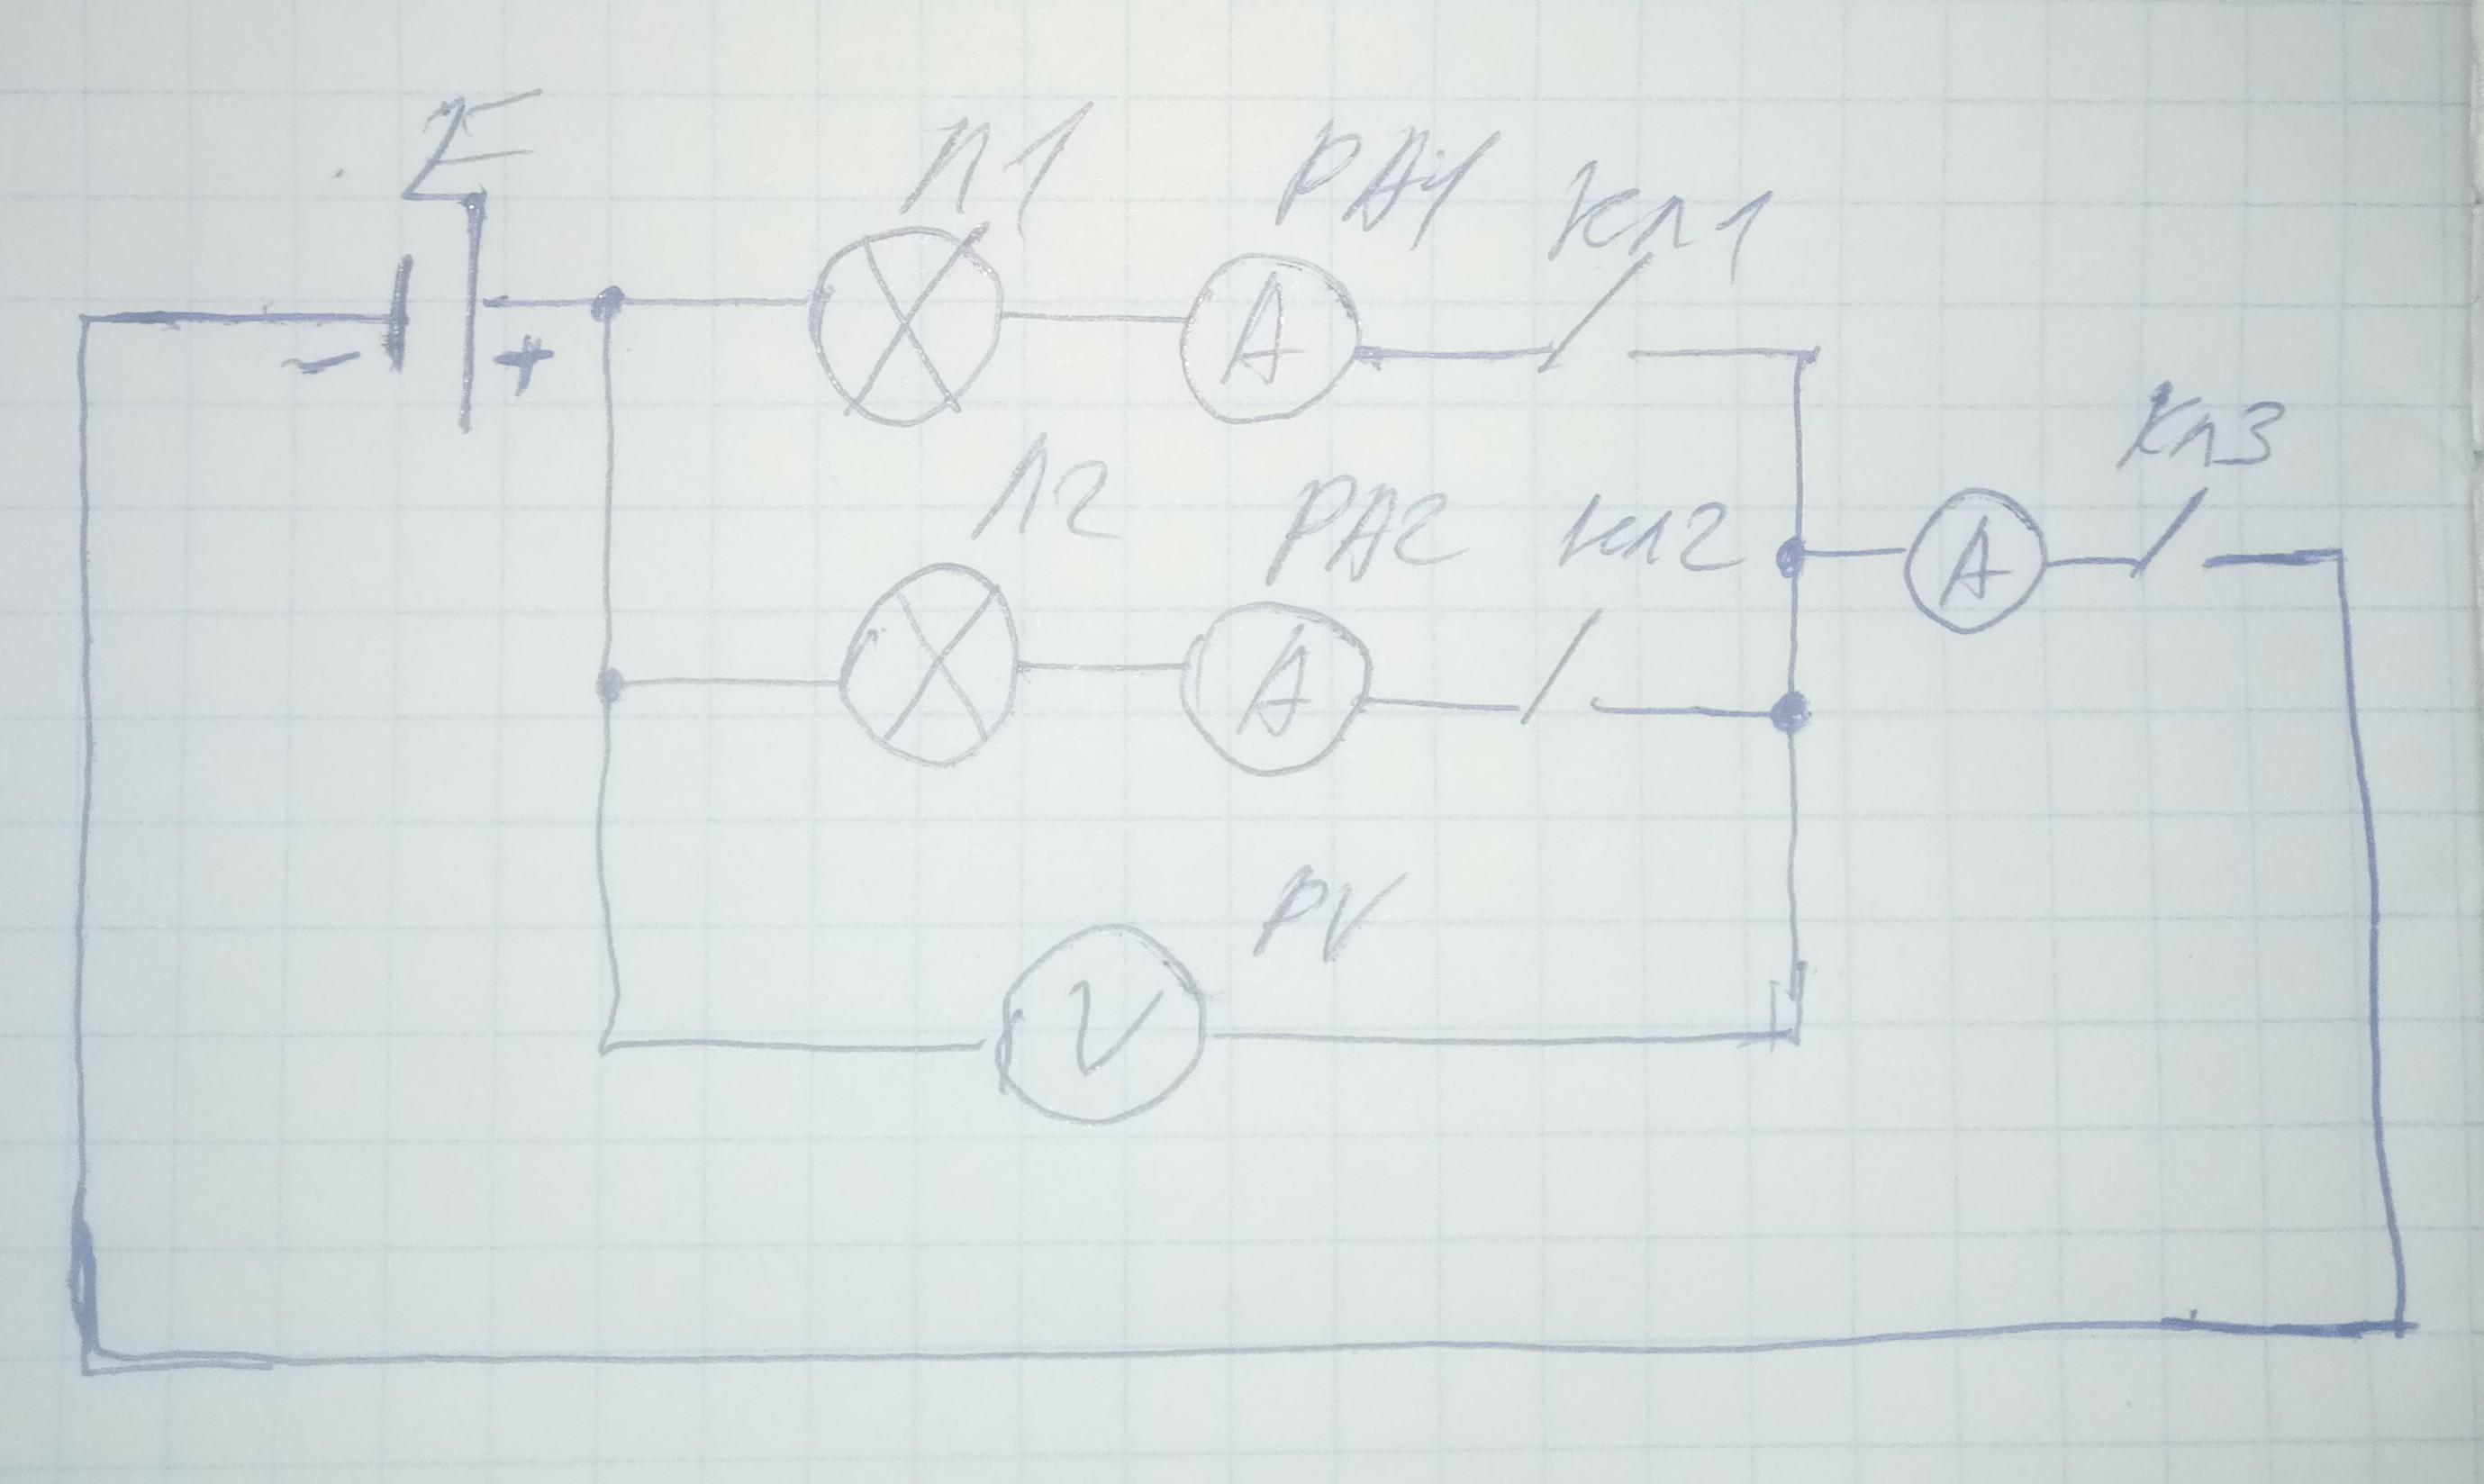 E
Л1
PA1
Кл1
- +
A
Кл3
Л2
PA2
Кл2
A
A
PV
V